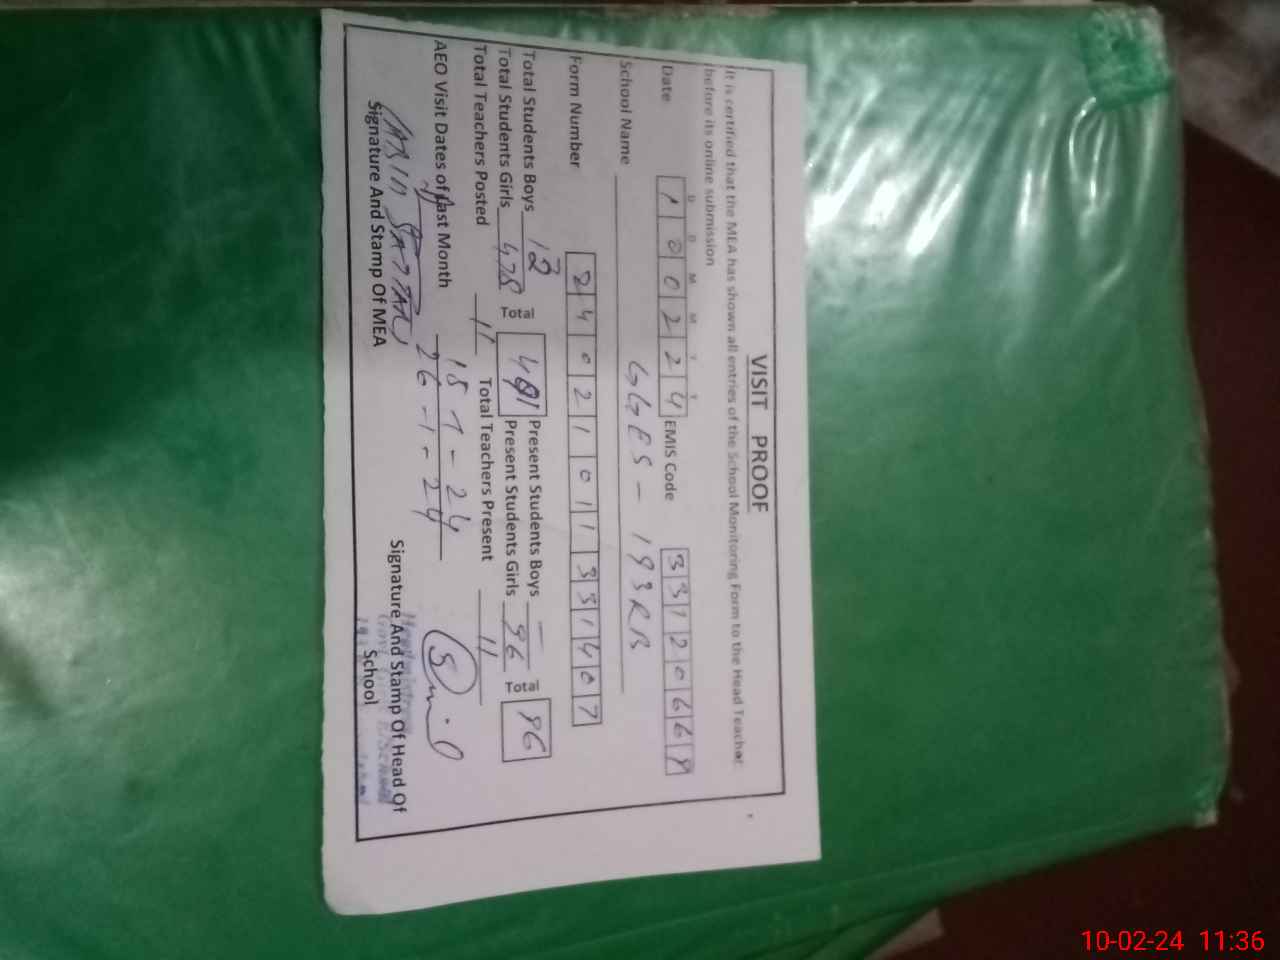 VISIT PROOF
It is certified that the MEA has shown all entries of the School Monitoring Form to the Head Teacher
before its online submission
D D M M Y Y
Date 1 0 0 2 2 4 EMIS Code 3 3 1 2 0 6 6 8
School Name GGES - 193RB
Form Number 2 4 0 2 1 0 1 1 3 3 1 4 0 7
Total Students Boys 12 Present Students Boys —
Total Students Girls 478 Total Present Students Girls 96 Total 96
Total Teachers Posted 11 Total Teachers Present 11
AEO Visit Dates of Last Month 18 1 - 24
26 - 1 - 24
Signature And Stamp Of MEA
Signature And Stamp Of Head Of
School
10-02-24 11:36